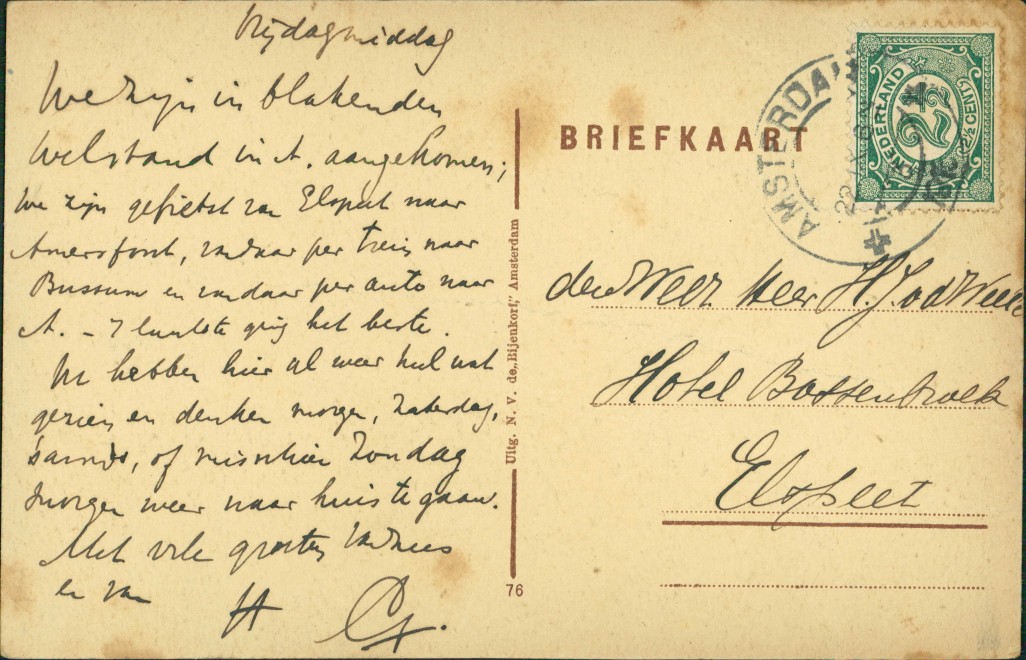 Vrijdagmiddag
We zijn in blakenden
welstand in A. aangekomen;
We zijn gefietst van Elspeet naar
Amersfoort, vandaar per trein naar
Bussum en vandaar per auto naar
A. – 't laatste ging het beste.
We hebben hier al weer heel wat
gezien en denken morgen, Zaterdag,
's avonds, of misschien Zondag
morgen weer naar huis te gaan.
Met vele groeten
en van H
BRIEFKAART
Uitg. N. V. de „Bijenkorf," Amsterdam
76
AMSTERDAM
NEDERLAND
2½
(2½ CENT)
den Weled. Heer H. J. v d
Hotel Bossenbroek
Elspeet